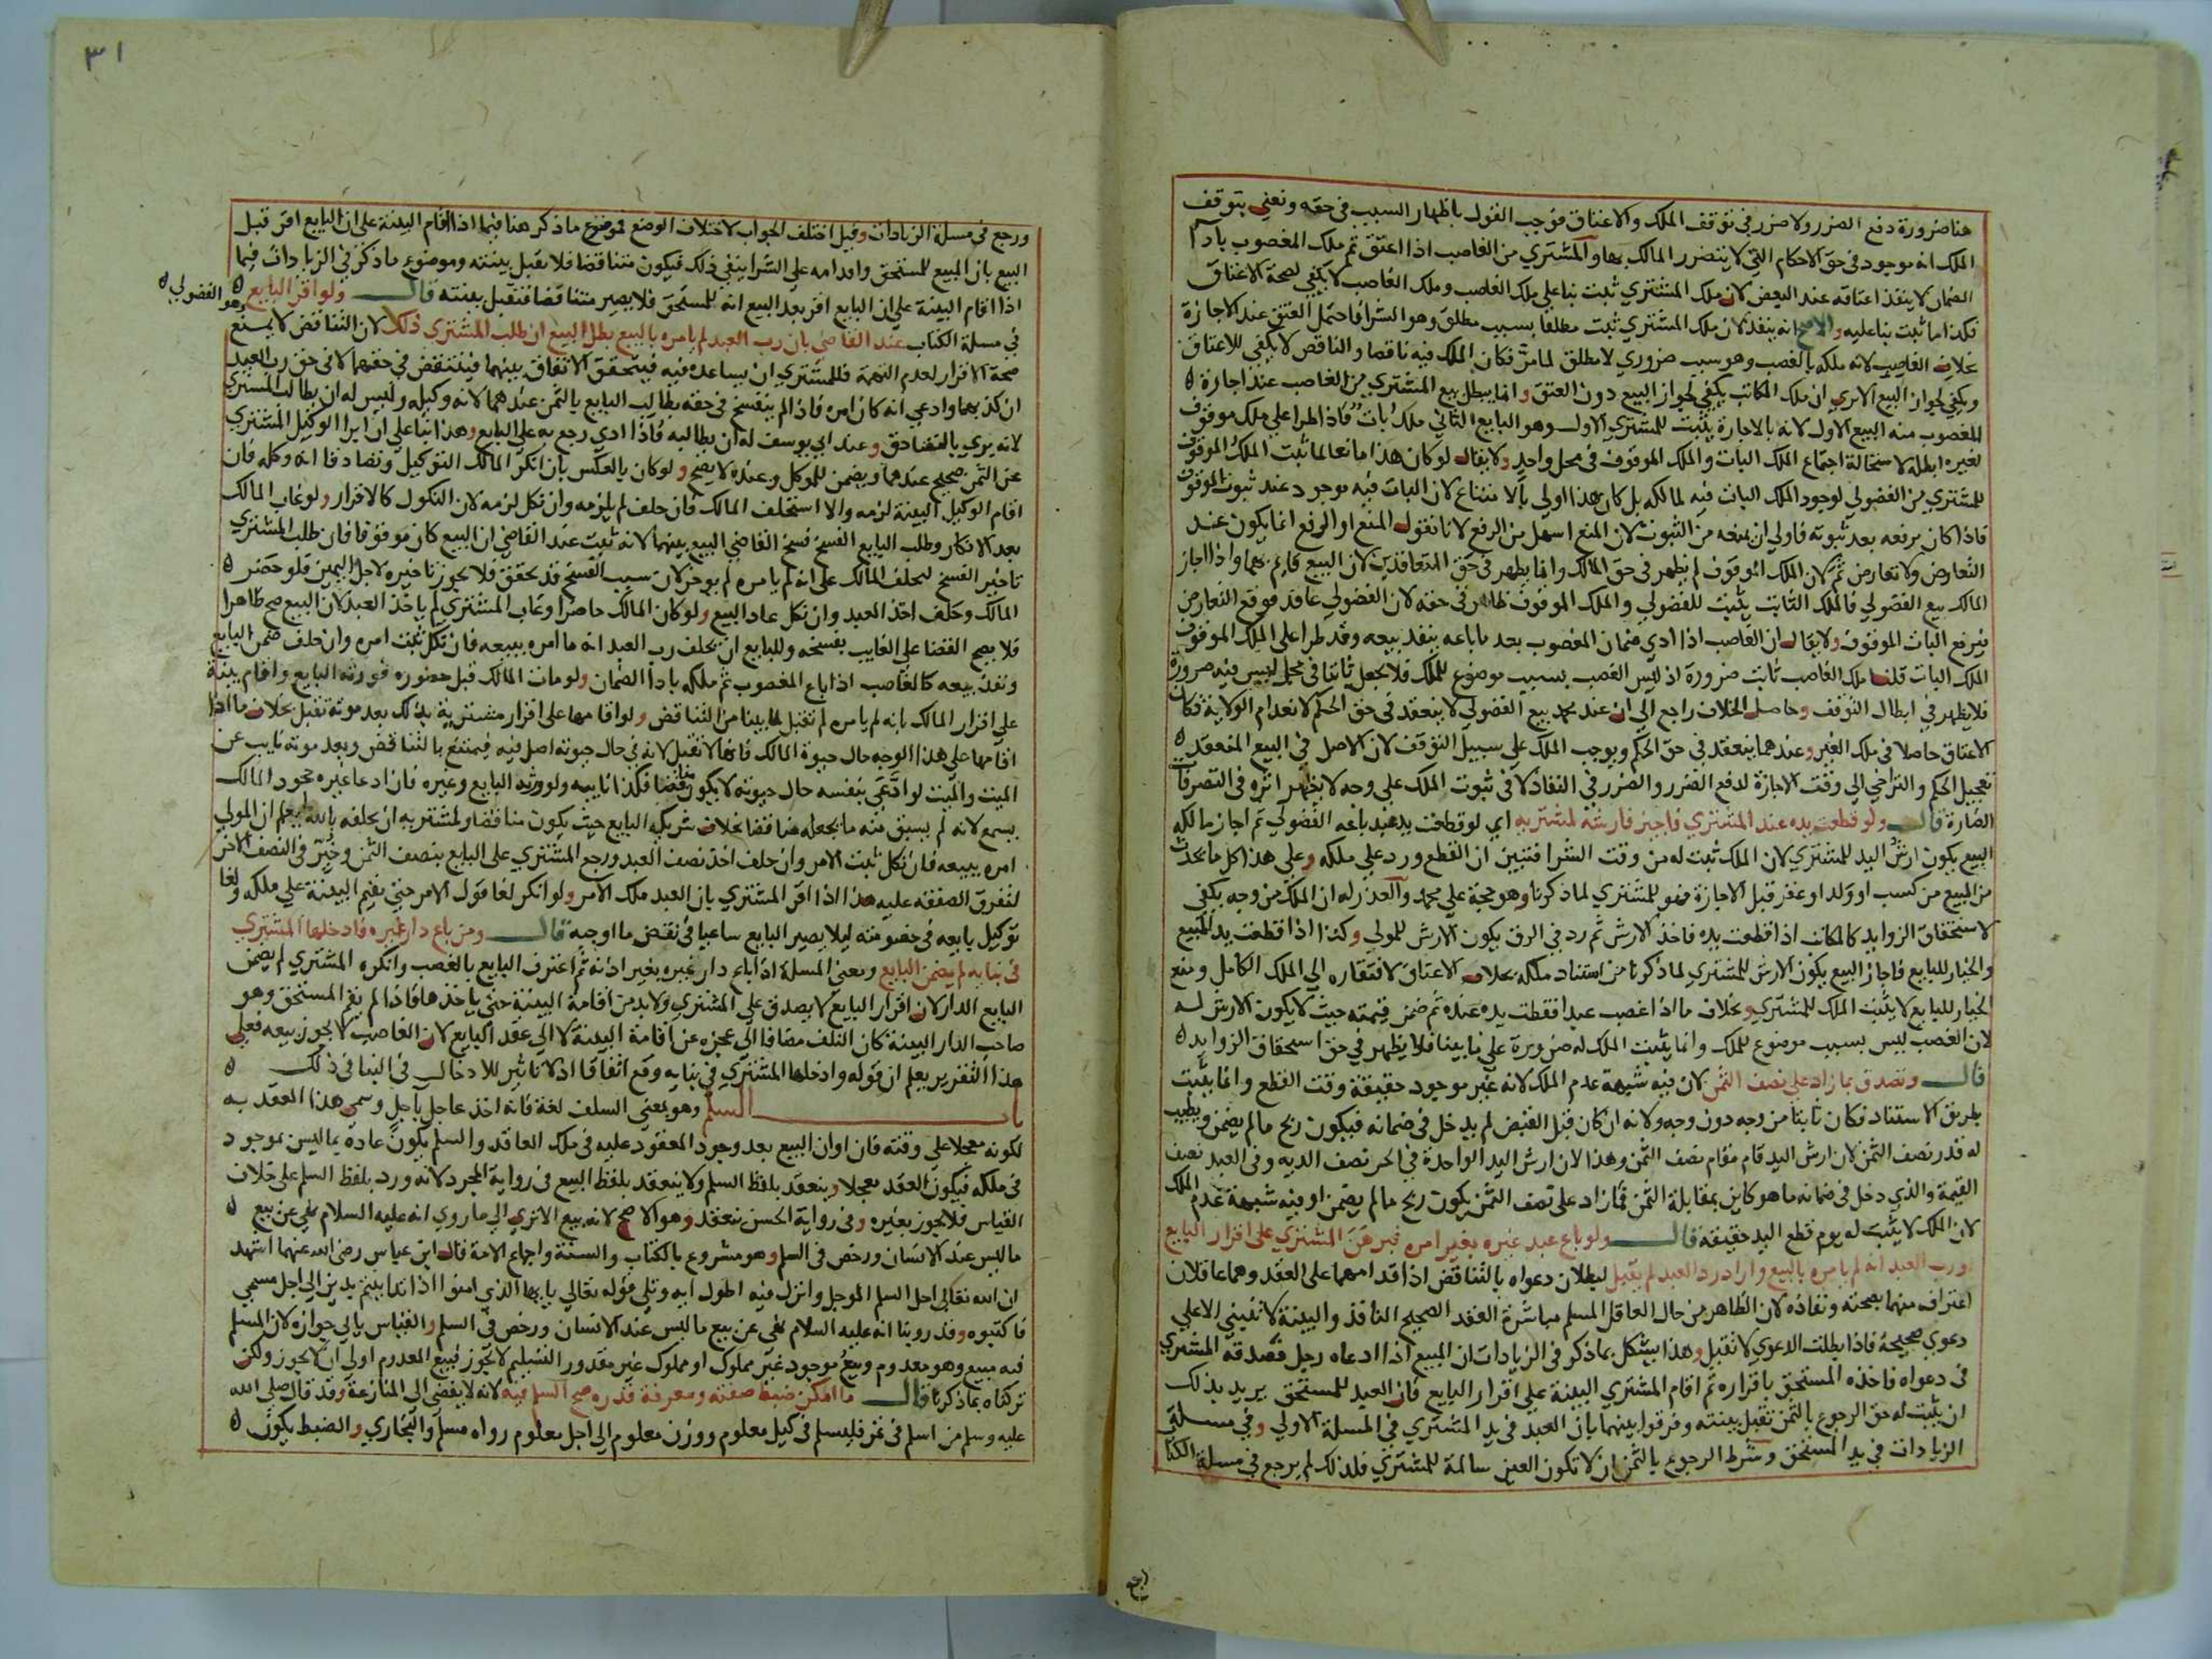 هنا ضرورة دفع الضرر ولا ضرر في توقف الملك والاعتاق فوجب القول باظهار السبب في حقه ونعني بتوقف
الملك انه موجود في حق الاحكام التي لا يتضرر المالك بها والمشتري من الغاصب اذا اعتق ثم ملك المغصوب باداء
الضمان لا ينفذ اعتاقه عند البعض لان ملك المشتري ثبت بنا على ملك الغاصب وملك الغاصب لا يكفي لصحة الاعتاق
فكذا ما ثبت بنا عليه والاصح انه ينفذ لان ملك المشتري ثبت مطلقا بسبب مطلق وهو الشرا فاحتمل العتق عند الاجازة
بخلاف الغاصب لانه ملكه بالغصب وهو سبب ضروري لا مطلق لما مر فكان الملك فيه ناقصا والناقص لا يكفي للاعتاق
ويكفي لجواز البيع الا يري ان ملك المكاتب يكفي لجواز البيع دون العتق وانما يبطل بيع المشتري من الغاصب عند اجازة
المغصوب منه البيع الاول لانه بالاجازة يثبت للمشتري الاول وهو البايع الثاني ملك بات فاذا طرا على ملك موقوف
لغيره ابطله لاستحالة اجتماع الملك البات والملك الموقوف في محل واحد ولا يقال لو كان هذا مانعا لما ثبت الملك الموقوف
للمشتري من الفضولي لوجود الملك البات فيه لمالكه بل كان هذا اولي بالامتناع لان البات فيه موجود عند ثبوت الموقوف
فاذا كان يرفعه بعد ثبوته فاولي ان يمنعه من الثبوت لان المنع اسهل من الرفع لانا نقول المنع او الرفع انما يكون عند
التعارض ولا تعارض ثم لان الملك الموقوف لم يظهر في حق المالك وانما يظهر في حق المتعاقدين لان البيع قايم بهما واذا اجاز
المالك بيع الفضولي فالملك الثابت يثبت للفضولي والملك الموقوف ظاهر في حقه لان الفضولي عاقد فوقع التعارض
فيرفع البات الموقوف ولا يقال ان الغاصب اذا ادي ضمان المغصوب بعد ما باعه ينفذ بيعه وقد طرا على الملك الموقوف
الملك البات قلنا ملك الغاصب ثابت ضرورة اذ ليس الغصب بسبب موضوع للملك فلا يجعل ثابتا في محل ليس فيه ضرورة
فلا يظهر في ابطال التوقف وحاصل الخلاف راجع الي ان عند محمد بيع الفضولي لا ينعقد في حق الحكم لانعدام الولاية فكان
الاعتاق حاصلا في ملك الغير وعندهما ينعقد في حق الحكم ويوجب الملك على سبيل التوقف لان الاصل في البيع المنعقد
تعجيل الحكم والتراخي الي وقت الاجازة لدفع الضرر والضرر في النفاذ لا في ثبوت الملك على وجه لا يظهر اثره في التصرفات
الضارة قال ولو قطعت يده عند المشتري فاجيز فارشه لمشتريه اي لو قطعت يد عبد باعه الفضولي ثم اجاز مالكه
البيع يكون ارش اليد للمشتري لان الملك ثبت له من وقت الشرا فتبين ان القطع ورد على ملكه وعلي هذا كل ما يحدث
من المبيع من كسب او ولد او عقر قبل الاجازة فهو للمشتري لما ذكرنا وهو حجة على محمد والعذر له ان الملك من وجه يكفي
لاستحقاق الزوايد كالمكاتب اذا قطعت يده فاخذ الارش ثم رد في الرق يكون الارش للمولي وكذا اذا قطعت يد المبيع
والخيار للبايع فاجاز البيع يكون الارش للمشتري لما ذكرنا من استناد ملكه بخلاف الاعتاق لافتقاره الي الملك الكامل ومنع
الخيار للبايع لا يثبت الملك للمشتري وبخلاف ما اذا غصب عبدا فقطعت يده عنده ثم ضمن قيمته حيث لا يكون الارش له
لان الغصب ليس بسبب موضوع للملك وانما يثبت الملك له ضرورة على ما بينا فلا يظهر في حق استحقاق الزوايد
قال وتصدق بما زاد على نصف الثمن لان فيه شبهة عدم الملك لانه غير موجود حقيقة وقت القطع وانما يثبت
بطريق الاستناد فكان ثابتا من وجه دون وجه ولانه ان كان قبل القبض لم يدخل في ضمانه فيكون ربح ما لم يضمن ويطيب
له قدر نصف الثمن لان ارش اليد قام مقام نصف الثمن وهذا لان ارش اليد الواحدة في الحر نصف الدية وفي العبد نصف
القيمة والذي دخل في ضمانه ما هو كاين بمقابلة الثمن فما زاد على نصف الثمن يكون ربح ما لم يضمن او فيه شبهة عدم الملك
لان الملك لا يثبت له يوم قطع اليد حقيقة قال ولو باع عبد غيره بغير امره فبرهن المشتري على اقرار البايع
او رب العبد انه لم يامره بالبيع واراد رد العبد لم يقبل لبطلان دعواه بالتناقض اذ اقدامهما على العقد وهما عاقلان
اعتراف منهما بصحته ونفاذه لان الظاهر من حال العاقل المسلم مباشرة العقد الصحيح النافذ والبينة لا تبتني الا علي
دعوي صحيحة فاذا بطلت الدعوي لا تقبل وهذا يشكل بما ذكر في الزيادات ان المبيع اذا ادعاه رجل فصدقه المشتري
في دعواه فاخذه المستحق باقراره ثم اقام المشتري البينة على اقرار البايع فان العبد للمستحق يريد بذلك
ان يثبت له حق الرجوع بالثمن تقبل بينته وفرقوا بينهما بان العبد في يد المشتري في المسلة الاولي وفي مسلتي
الزيادات في يد المستحق وشرط الرجوع بالثمن ان لا تكون العين سالمة للمشتري فلذلك لم يرجع في مسلة الكتا
رجع
٣١
ورجع في مسلة الزيادات وقيل اختلف الجواب لاختلاف الوضع فموضوع ما ذكر هنا فيما اذا اقام البينة على ان البايع اقر قبل
البيع بان المبيع للمستحق واقدامه على الشرا ينفي ذلك فيكون متناقضا فلا تقبل بينته وموضوع ما ذكر في الزيادات فيما
اذا اقام البينة على ان البايع اقر بعد البيع انه للمستحق فلا يصير متناقضا فتقبل بينته قال ولو اقر البايع
وهو الفضولي
في مسلة الكتاب عند القاضي بان رب العبد لم يامره بالبيع بطل البيع ان طلب المشتري ذلك لان التناقض لا يمنع
صحة الاقرار لعدم التهمة فللمشتري ان يساعده فيه فيتحقق الاتفاق بينهما فينتقض في حقهما لا في حق رب العبد
ان كذبهما وادعي انه كان امره فاذا لم ينفسخ في حقه يطالب البايع بالثمن عندهما لانه وكيله وليس له ان يطالب المشتري
لانه يري بالتصادق وعند ابي يوسف له ان يطالبه فاذا ادي رجع به على البايع وهذا بنا على ان ابرا الوكيل المشتري
عن الثمن صحيح عندهما ويضمن للموكل وعنده لا يصح ولو كان بالعكس بان انكر المالك التوكيل وتصادقا انه وكله فان
اقام الوكيل البينة لزمه والا استحلف المالك فان حلف لم يلزمه وان نكل لزمه لان النكول كالاقرار ولو غاب المالك
بعد الانكار وطلب البايع الفسخ فسخ القاضي البيع بينهما لانه ثبت عند القاضي ان البيع كان موقوفا فان طلب المشتري
تاخير الفسخ ليحلف المالك على انه لم يامره لم يوخر لان سبب الفسخ قد تحقق فلا يجوز تاخيره لاجل اليمين فلو حضر
المالك وحلف اخذ العبد وان نكل عاد البيع ولو كان المالك حاضرا وغاب المشتري لم ياخذ العبد لان البيع صح ظاهرا
فلا يصح القضا على الغايب بفسخه وللبايع ان يحلف رب العبد انه ما امره ببيعه فان نكل ثبت امره وان حلف ضمن البايع
ونفذ بيعه كالغاصب اذا باع المغصوب ثم ملكه بادا الضمان ولو مات المالك قبل حضوره فورثه البايع واقام بينة
على اقرار المالك بانه لم يامره لم تقبل لما بينا من التناقض ولو اقامها على اقرار مشتريه بذلك بعد موته تقبل بخلاف ما اذا
اقامها على هذا الوجه حال حيوة المالك فانها لا تقبل لانه في حال حيوته اصل فيه فيمتنع بالتناقض وبعد موته نايب عن
الميت والميت لو ادعي بنفسه حال حيوته لا يكون متناقضا فكذا نايبه ولو ورثه البايع وغيره فان ادعا غيره جحود المالك
يسمع لانه لم يسبق منه ما يجعله مناقضا بخلاف شريكه البايع حيث يكون مناقضا ولمشتريه ان يحلفه بالله ما يعلم ان المولي
امره ببيعه فان نكل ثبت الامر وان حلف اخذ نصف العبد ورجع المشتري على البايع بنصف الثمن وخير في النصف الاخر
لتفرق الصفقة عليه هذا اذا اقر المشتري بان العبد ملك الآمر ولو انكر لغا قول الآمر حتي يقيم البينة على ملكه ولغا
توكيل بايعه في خصومته ليلا يصير البايع ساعيا في نقض ما اوجبه قال ومن باع دار غيره فادخلها المشتري
في بنايه لم يضمن البايع ومعني المسلة اذا باع دار غيره بغير اذنه ثم اعترف البايع بالغصب وانكره المشتري لم يضمن
البايع الدار لان اقرار البايع لا يصدق على المشتري ولا بد من اقامة البينة حتي ياخذها فاذا لم يقم المستحق وهو
صاحب الدار البينة كان التلف مضافا الي عجزه عن اقامة البينة لا الي عقد البايع لان الغاصب لا يجوز بيعه فعلي
هذا التقرير يعلم ان قوله وادخلها المشتري في بنايه وقع اتفاقا اذ لا تاثير للادخال في البنا في ذلك
باب السلم وهو بمعني السلف لغة فانه اخذ عاجل بآجل وسمي هذا العقد به
لكونه معجلا على وقته فان اوان البيع بعد وجود المعقود عليه في ملك العاقد والسلم يكون عادة بما ليس بموجود
في ملكه فيكون العقد معجلا وينعقد بلفظ السلم ولا ينعقد بلفظ البيع في رواية المجرد لانه ورد بلفظ السلم على خلاف
القياس فلا يجوز بغيره وفي رواية الحسن ينعقد وهو الاصح لانه بيع الا تري الي ما روي انه عليه السلام نهي عن بيع
ما ليس عند الانسان ورخص في السلم وهو مشروع بالكتاب والسنة واجماع الامة قال ابن عباس رضي الله عنهما اشهد
ان الله تعالى احل السلم الموجل وانزل فيه اطول اية وتلي قوله تعالي يا ايها الذين امنوا اذا تداينتم بدين الي اجل مسمي
فاكتبوه وقد روينا انه عليه السلام نهي عن بيع ما ليس عند الانسان ورخص في السلم والقياس يابي جوازه لان المسلم
فيه مبيع وهو معدوم وبيع موجود غير مملوك او مملوك غير مقدور التسليم لا يجوز فبيع المعدوم اولي ان لا يجوز ولكن
تركناه بما ذكرنا قال ما امكن ضبط صفته ومعرفة قدره صح السلم فيه لانه لا يفضي الي المنازعة وقد قال صلى الله
عليه وسلم من اسلم في ثمر فليسلم في كيل معلوم ووزن معلوم الي اجل معلوم رواه مسلم والبخاري والضبط يكون